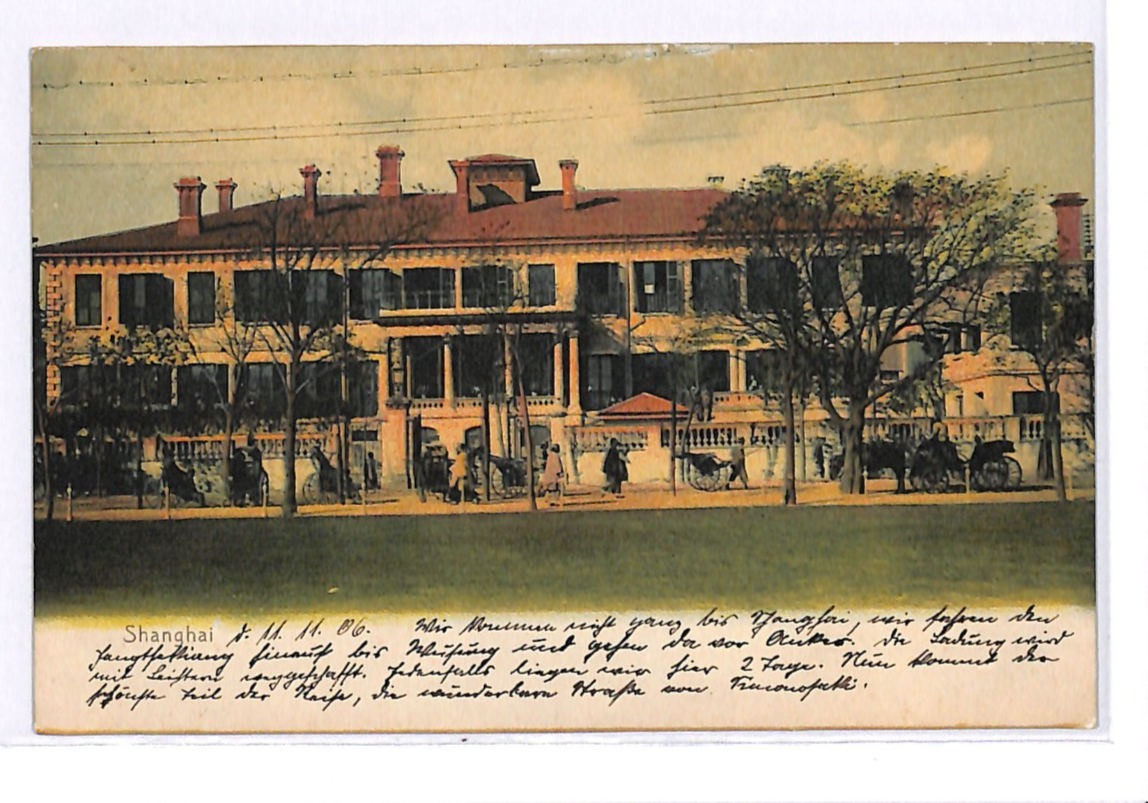 Shanghai d. 11. 11. 06. Wir kommen nicht ganz bis Shanghai, wir fahren den
Jangthekiang hinauf bis Wusung und gehen da vor Anker. Die Ladung wird
mit Leichtern weggeschafft. Jedenfalls liegen wir hier 2 Tage. Nun kommt der
schönste Teil der Reise, die wunderbare Straße von